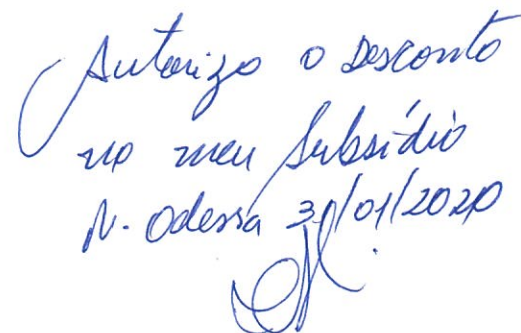 Autorizo o Desconto
no meu Subsídio
N. Odessa 31/01/2020